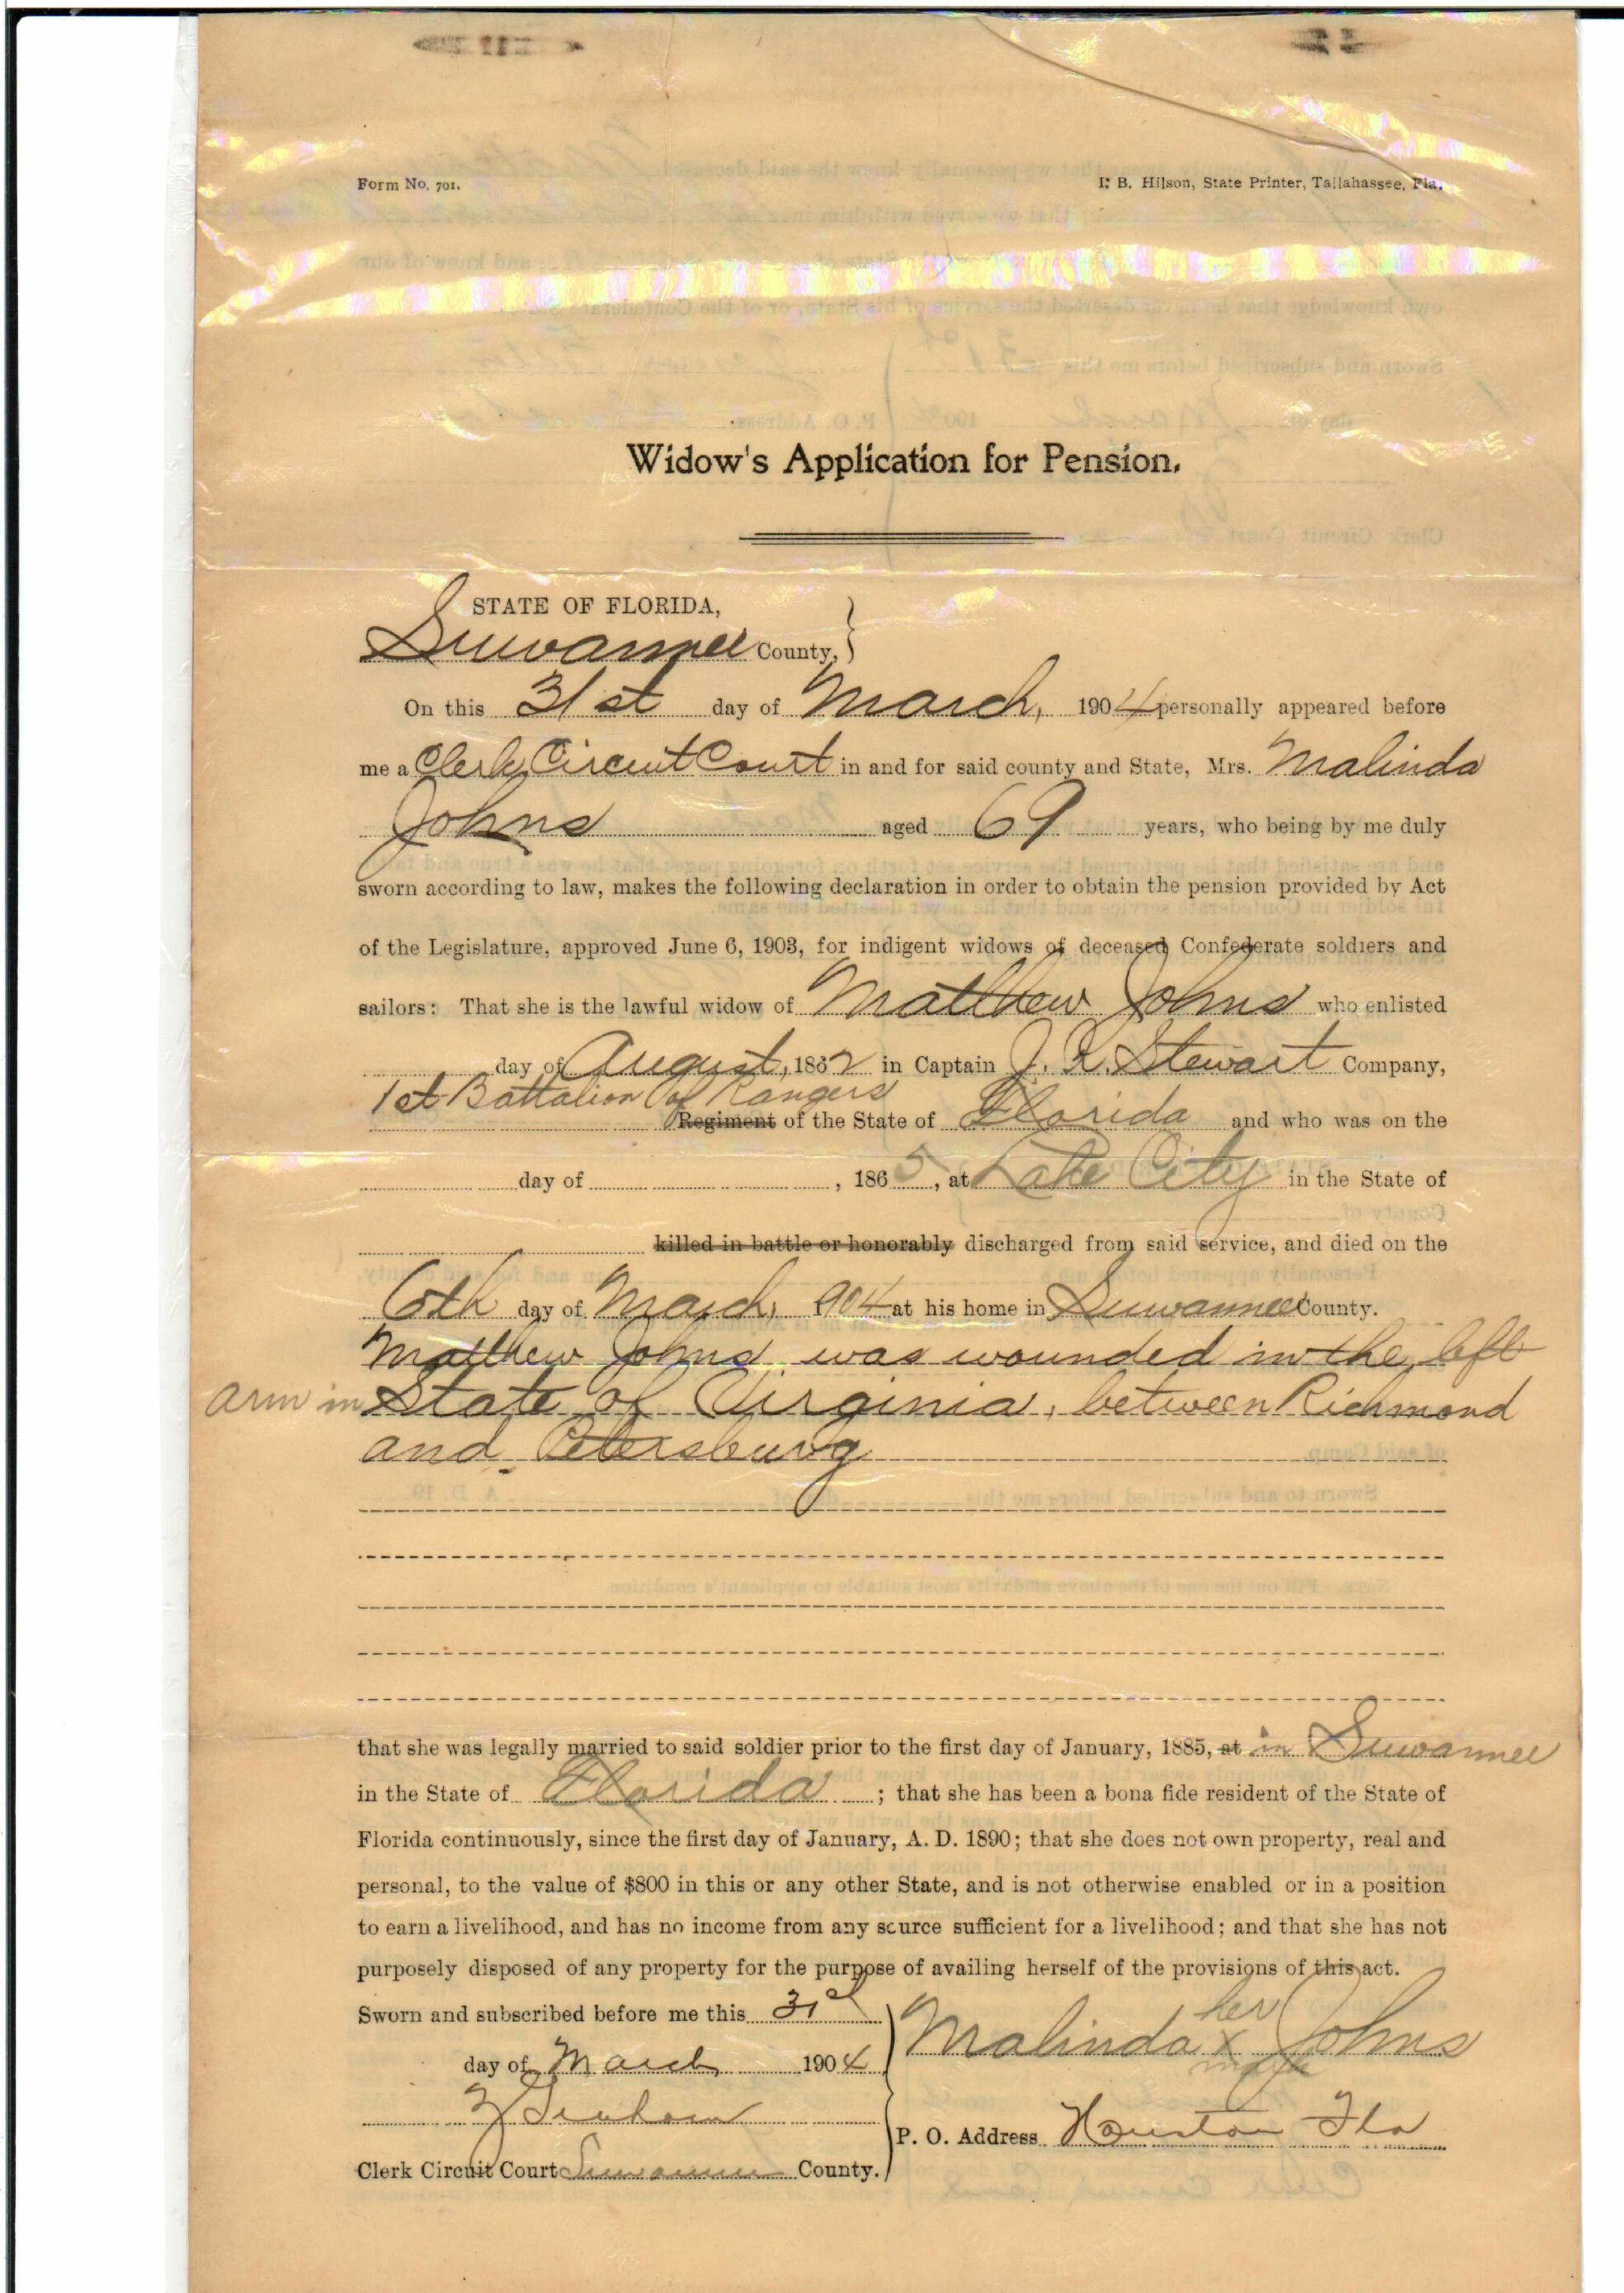 Form No. 701.
I. B. Hilson, State Printer, Tallahassee, Fla.
Widow's Application for Pension.
STATE OF FLORIDA,
Suwannee County,
On this 31st day of March, 1904 personally appeared before
me a Clerk Circuit Court in and for said county and State, Mrs. Malinda
Johns aged 69 years, who being by me duly
sworn according to law, makes the following declaration in order to obtain the pension provided by Act
of the Legislature, approved June 6, 1903, for indigent widows of deceased Confederate soldiers and
sailors: That she is the lawful widow of Matthew Johns who enlisted
day of August, 1862 in Captain J. R. Stewart Company,
1st Battalion of Rangers
Regiment of the State of Florida and who was on the
day of , 1865, at Lake City in the State of
killed in battle or honorably discharged from said service, and died on the
6th day of March, 1904 at his home in Suwannee County.
Matthew Johns was wounded in the left
arm in State of Virginia, between Richmond
and Petersburg
that she was legally married to said soldier prior to the first day of January, 1885, at in Suwannee
in the State of Florida ; that she has been a bona fide resident of the State of
Florida continuously, since the first day of January, A. D. 1890; that she does not own property, real and
personal, to the value of $800 in this or any other State, and is not otherwise enabled or in a position
to earn a livelihood, and has no income from any source sufficient for a livelihood; and that she has not
purposely disposed of any property for the purpose of availing herself of the provisions of this act.
Sworn and subscribed before me this 31st
day of March 1904
her
Malinda x Johns
mark
P. O. Address Houston Fla
Clerk Circuit Court Suwannee County.